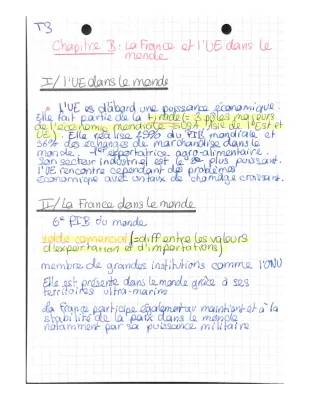 T3
Chapitre B: La France et l'UE dans le
monde
I/ l'UE dans le monde
L'UE es d'abord une puissance économique.
Elle fait partie de la triade (= 3 pôles majeurs
de l'économie mondiale = USA, Asie de l'Est et
UE). Elle réalise 25% du PIB mondiale et
36% des échanges de marchandise dans le
monde. 1ère exportatrice agro-alimentaire.
Son secteur industriel est le plus puissant.
l'UE rencontre cependant des problèmes
économique avec un taux de chômage croissant.
II/ La France dans le monde
6e PIB du monde
solde comercial (=diff entre les valeurs
d'exportation et d'importations)
membre de grandes institutions comme l'ONU
Elle est présente dans le monde grâce à ses
territoires ultra-marins
La France participe également au maintient et à la
stabilité de la paix dans le monde
notamment par sa puissance militaire